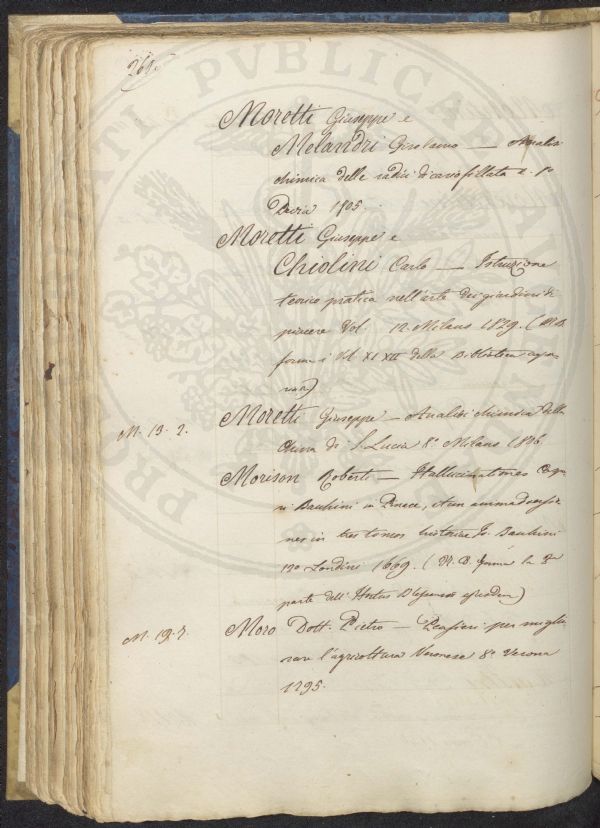 260.
Moretti Giuseppe e
Melandri Girolamo — Analisi
chimica delle radici di cariofillata 8.° 1°
Pavia 1805.
Moretti Giuseppe e
Chiolini Carlo — Istruzione
teorico pratica nell'arte dei giardini di
piacere Vol. 12 Milano 1829. (N.B.
forma i Vol. XI XII della Biblioteca agra
ria)
M. 13. 2. Moretti Giuseppe — Analisi chimica della
China di S. Lucia 8.° Milano 1806
Morison Roberti — Hallucinationes Caspa
ri Bauhini in Pinace, et animadversio
nes in tres tomos historiae Jo. Bauhini
12° Londini 1669. (N.B. forma la 2da
parte dell'Hortus Blesensis)
M. 19. 7. Moro Dott. Pietro — Pensieri per miglio
rare l'agricoltura Veronese 8.° Verona
1795.
PROBITATI PUBLICAE